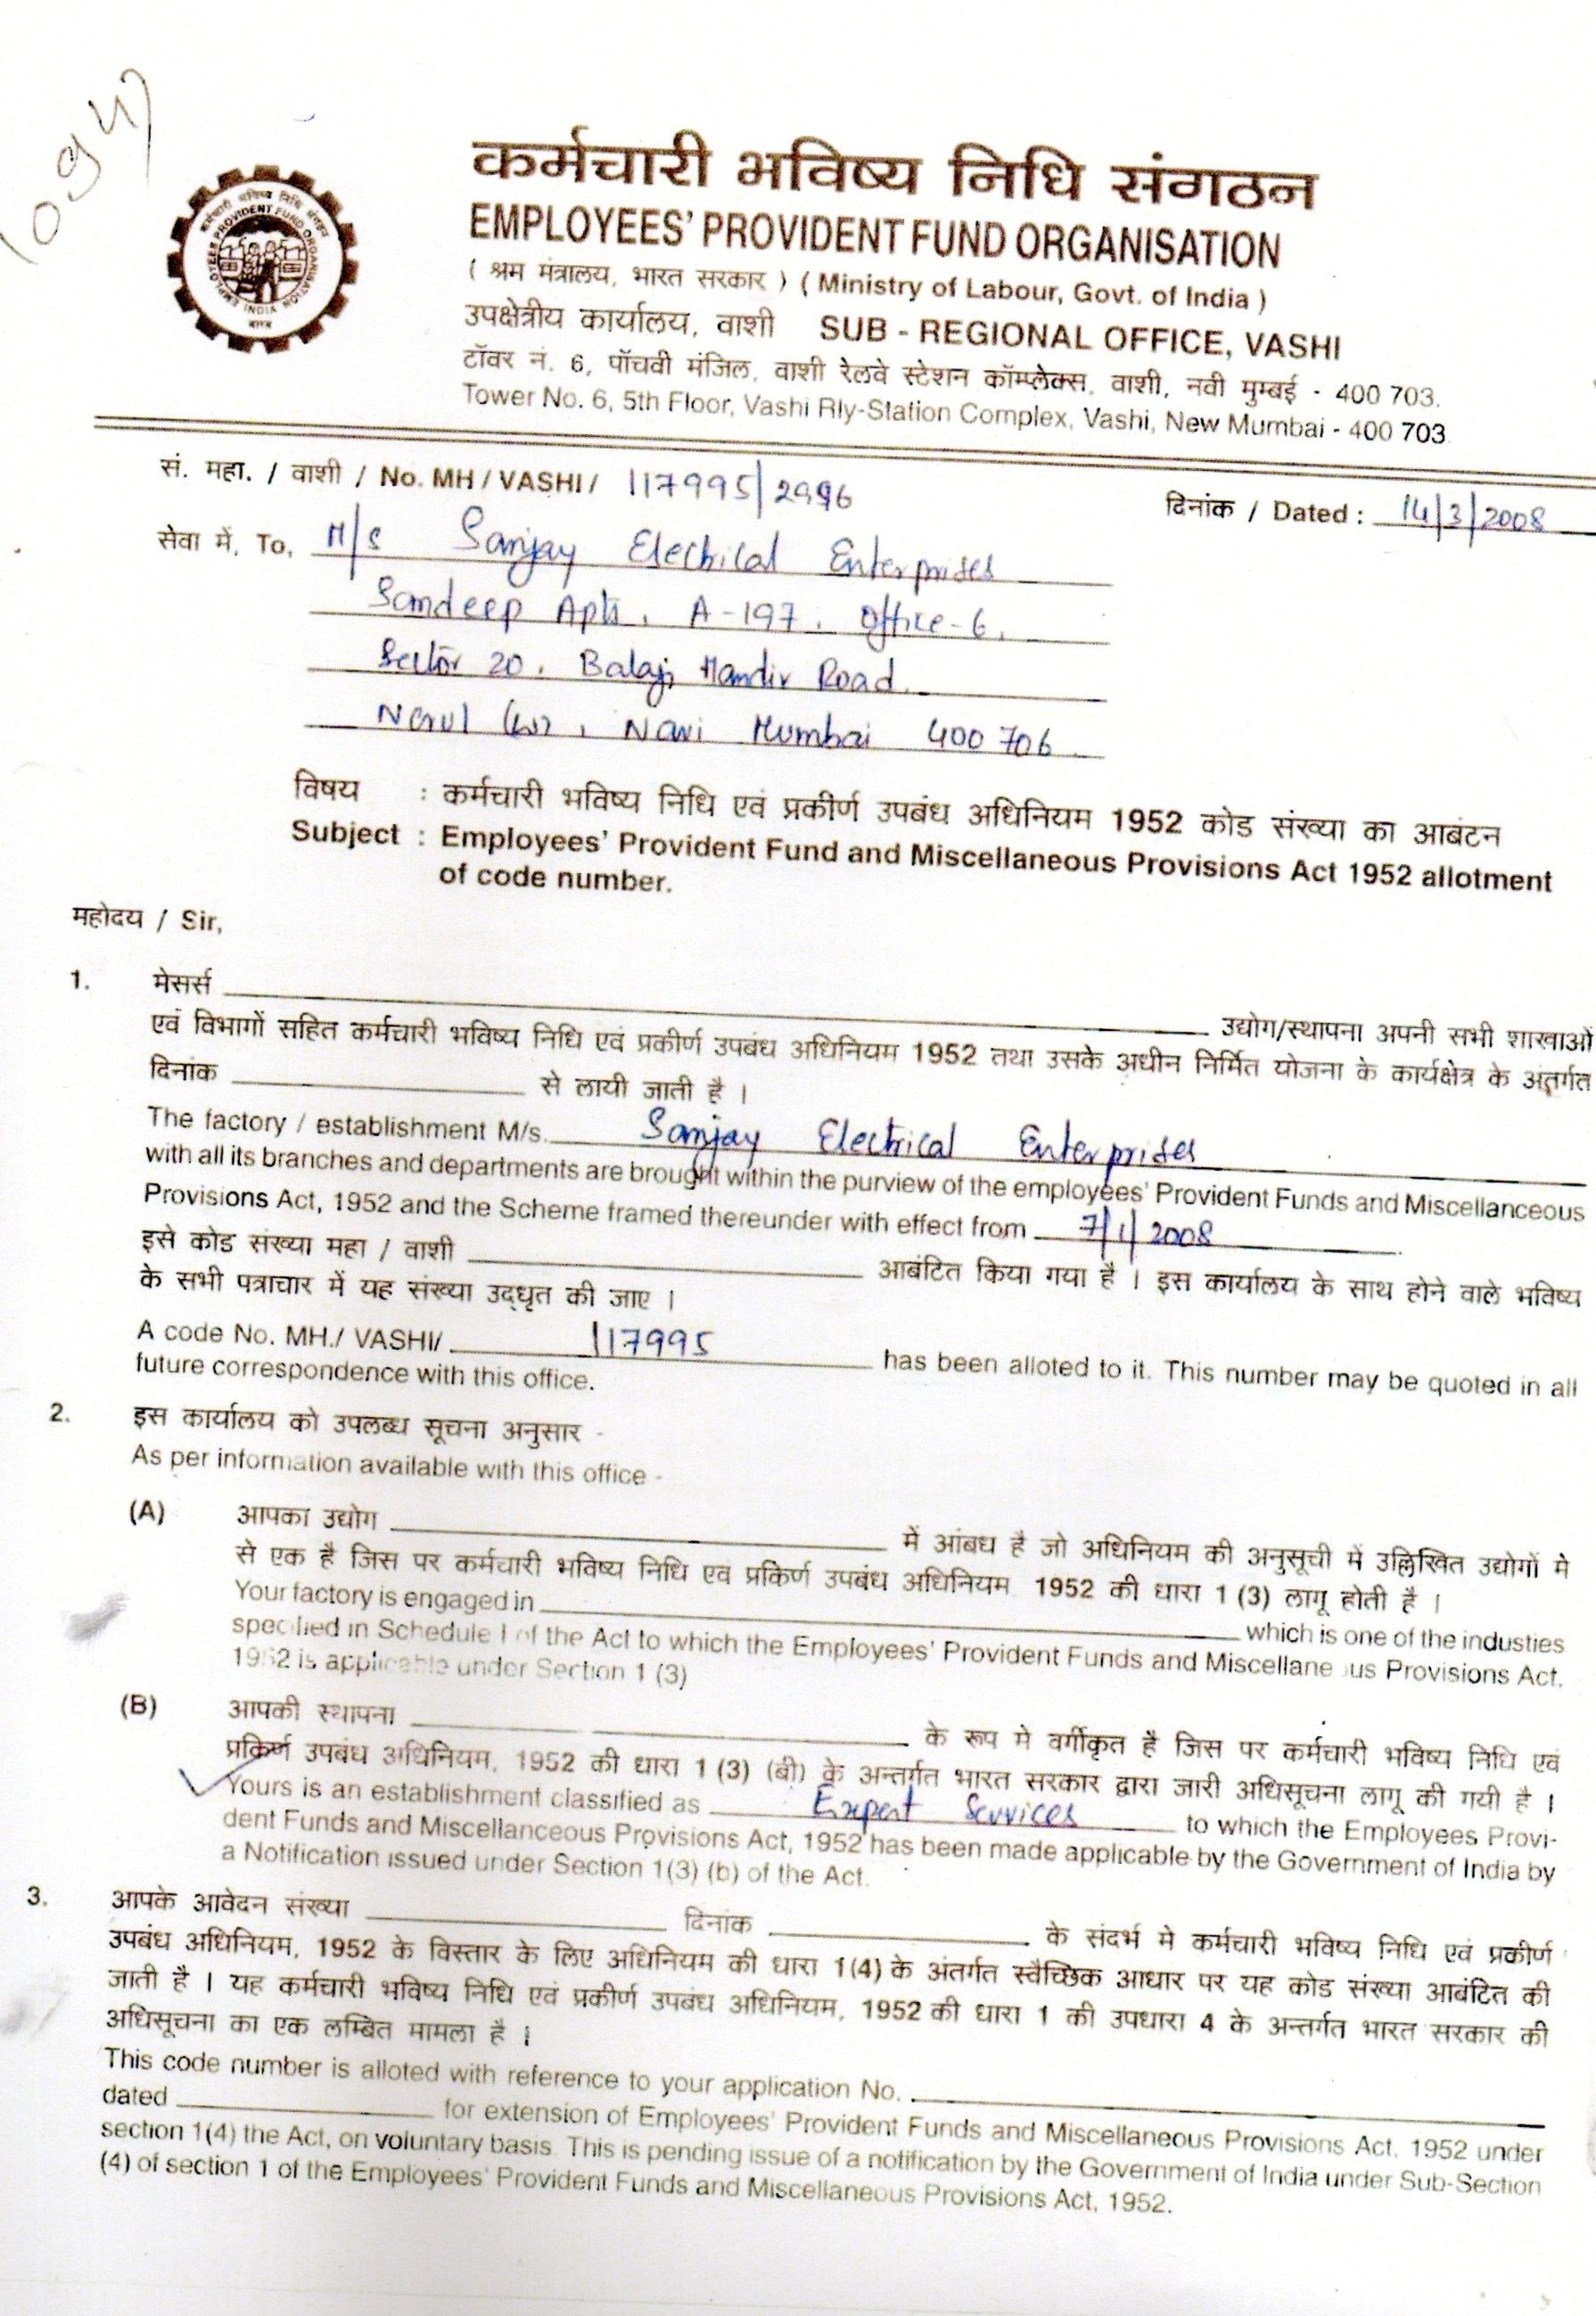 1094)
कर्मचारी भविष्य निधि संगठन
EMPLOYEES' PROVIDENT FUND ORGANISATION
( श्रम मंत्रालय, भारत सरकार ) ( Ministry of Labour, Govt. of India )
उपक्षेत्रीय कार्यालय, वाशी SUB - REGIONAL OFFICE, VASHI
टॉवर नं. 6, पाँचवी मंजिल, वाशी रेलवे स्टेशन कॉम्प्लेक्स, वाशी, नवी मुम्बई - 400 703.
Tower No. 6, 5th Floor, Vashi Rly-Station Complex, Vashi, New Mumbai - 400 703
EMPLOYEES PROVIDENT FUND ORGANISATION INDIA
सं. महा. / वाशी / No. MH / VASHI / 117995/2996
दिनांक / Dated : 14/3/2008
सेवा में, To, M/s Sanjay Electrical Enterprises
Sandeep Apts, A-197, Office-6,
Sector 20, Balaji Mandir Road
Nerul (W), Navi Mumbai 400 706
विषय : कर्मचारी भविष्य निधि एवं प्रकीर्ण उपबंध अधिनियम 1952 कोड संख्या का आबंटन
Subject : Employees' Provident Fund and Miscellaneous Provisions Act 1952 allotment
of code number.
महोदय / Sir,
1. मेसर्स उद्योग/स्थापना अपनी सभी शाखाओं
एवं विभागों सहित कर्मचारी भविष्य निधि एवं प्रकीर्ण उपबंध अधिनियम 1952 तथा उसके अधीन निर्मित योजना के कार्यक्षेत्र के अंतर्गत
दिनांक से लायी जाती है ।
The factory / establishment M/s. Sanjay Electrical Enterprises
with all its branches and departments are brought within the purview of the employees' Provident Funds and Miscellanceous
Provisions Act, 1952 and the Scheme framed thereunder with effect from 7/1/2008
इसे कोड संख्या महा / वाशी आबंटित किया गया है । इस कार्यालय के साथ होने वाले भविष्य
के सभी पत्राचार में यह संख्या उद्धृत की जाए ।
A code No. MH./ VASHI/ 117995 has been alloted to it. This number may be quoted in all
future correspondence with this office.
2. इस कार्यालय को उपलब्ध सूचना अनुसार -
As per information available with this office -
(A) आपका उद्योग में आंबध है जो अधिनियम की अनुसूची में उल्लिखित उद्योगों मे
से एक है जिस पर कर्मचारी भविष्य निधि एवं प्रकिर्ण उपबंध अधिनियम 1952 की धारा 1 (3) लागू होती है ।
Your factory is engaged in which is one of the industies
specified in Schedule I of the Act to which the Employees' Provident Funds and Miscellaneous Provisions Act.
1952 is applicable under Section 1 (3)
(B) आपकी स्थापना के रूप मे वर्गीकृत है जिस पर कर्मचारी भविष्य निधि एवं
प्रकिर्ण उपबंध अधिनियम, 1952 की धारा 1 (3) (बी) के अन्तर्गत भारत सरकार द्वारा जारी अधिसूचना लागू की गयी है ।
Yours is an establishment classified as Expert Services to which the Employees Provi-
dent Funds and Miscellanceous Provisions Act, 1952 has been made applicable by the Government of India by
a Notification issued under Section 1(3) (b) of the Act.
3. आपके आवेदन संख्या दिनांक के संदर्भ मे कर्मचारी भविष्य निधि एवं प्रकीर्ण
उपबंध अधिनियम, 1952 के विस्तार के लिए अधिनियम की धारा 1(4) के अंतर्गत स्वैच्छिक आधार पर यह कोड संख्या आबंटित की
जाती है । यह कर्मचारी भविष्य निधि एवं प्रकीर्ण उपबंध अधिनियम, 1952 की धारा 1 की उपधारा 4 के अन्तर्गत भारत सरकार की
अधिसूचना का एक लम्बित मामला है ।
This code number is alloted with reference to your application No.
dated for extension of Employees' Provident Funds and Miscellaneous Provisions Act, 1952 under
section 1(4) the Act, on voluntary basis. This is pending issue of a notification by the Government of India under Sub-Section
(4) of section 1 of the Employees' Provident Funds and Miscellaneous Provisions Act, 1952.